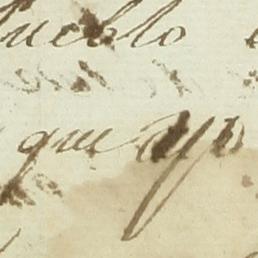 Pueblo
que yo